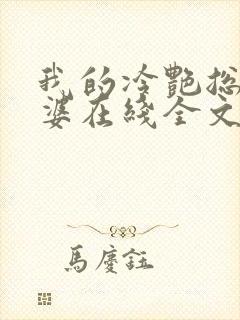 我的冷艷總
婆在綫全文
馬慶鈺